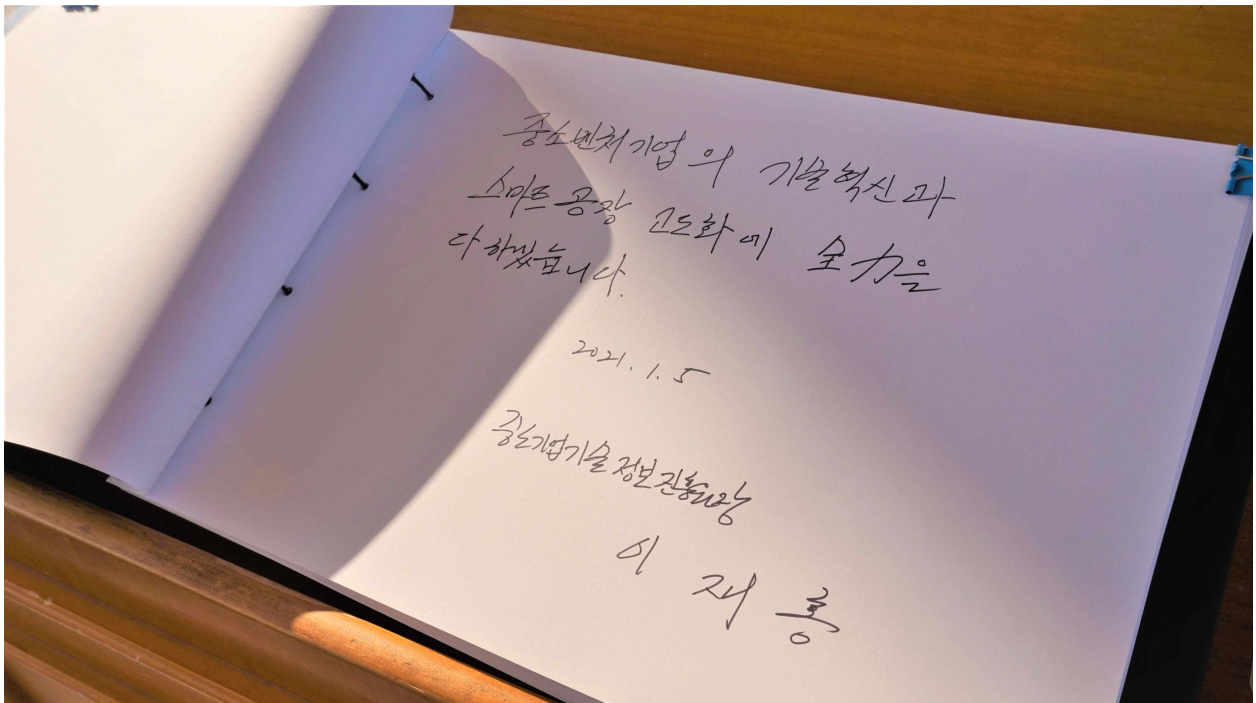 중소벤처기업의 기술혁신과
스마트공장 고도화에 全力을
다하겠습니다.
2021. 1. 5
중소기업기술정보진흥원장
이 재 홍